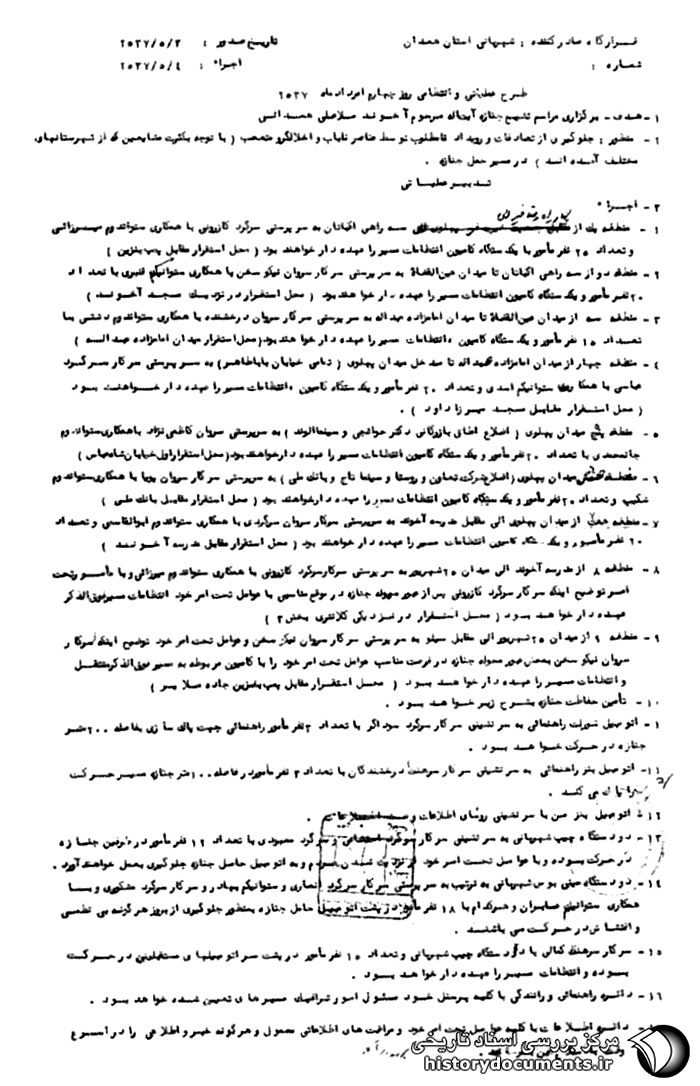 قرارگاه صادر کننده : شهربانی استان همدان تاریخ صدور : ۲۵۳۷/۵/۳
شماره : اجراء : ۲۵۳۷/۵/۴
طرح عملیاتی و انتظامی روز چهارم امرداد ماه ۲۵۳۷
۱ - هدف - برگزاری مراسم تشییع جنازه آیت‌اله مرحوم آخوند ملاعلی همدانی
۲ - منظور : جلوگیری از تصادفات و رویداد نامطلوب توسط عناصر ناباب و اخلالگر و متعصب ( با توجه بکثرت مشایعین که از شهرستانهای
مختلف آمده اند ) در مسیر حمل جنازه .
تدبیر عملیاتی
۳ - اجراء
۱ - منطقه یک از سه راهی اکباتان به سرپرستی سرگرد کازرونی با همکاری ستواندوم میرزائی
و تعداد ۲۵ نفر مأمور با یکدستگاه کامیون انتظامات مسیر را عهده دار خواهند بود ( محل استقرار مقابل پمپ بنزین )
۲ - منطقه دو از سه راهی اکباتان تا میدان عین‌القضاة به سرپرستی سرکار سروان نیکو سخن با همکاری ستوانیکم قنبری با تعداد
۲۰ نفر مأمور و یکدستگاه کامیون انتظامات مسیر را عهده دار خواهند بود ( محل استقرار در نزدیک مسجد آخوند )
۳ - منطقه سه از میدان عین‌القضاة تا میدان امامزاده عبداله به سرپرستی سرکار سروان درخشنده با همکاری ستواندوم دشتی با
تعداد ۱۵ نفر مأمور و یکدستگاه کامیون انتظامات مسیر را عهده دار خواهند بود ( محل استقرار میدان امامزاده عبداله )
۴ - منطقه چهار از میدان امامزاده عبداله تا مدخل میدان پهلوی ( تمامی خیابان باباطاهر ) به سرپرستی سرکار سرگرد
عباسی با همکاری ستوانیکم اسدی و تعداد ۲۰ نفر مأمور و یکدستگاه کامیون انتظامات مسیر را عهده دار خواهند بود
( محل استقرار مقابل مسجد میرزا داود ) .
۵ - منطقه پنج میدان پهلوی ( اضلاع اطاق بازرگانی دکتر حوائجی و سینما الوند ) به سرپرستی سروان کاظمی نژاد با همکاری ستواندوم
جانمحمدی با تعداد ۲۰ نفر مأمور و یکدستگاه کامیون انتظامات مسیر را عهده دار خواهند بود ( محل استقرار اول خیابان شاه عباس )
۶ - منطقه شش میدان پهلوی ( اضلاع شرکت تعاون و روستا و سینما تاج و بانک ملی ) به سرپرستی سرکار سروان پویا با همکاری ستواندوم
شکیب و تعداد ۲۰ نفر مأمور و یک دستگاه کامیون انتظامات مسیر را عهده دار خواهند بود ( محل استقرار مقابل بانک ملی )
۷ - منطقه هفت از میدان پهلوی الی مقابل مدرسه آخوند به سرپرستی سرکار سروان سرگردی با همکاری ستواندوم ابوالقاسمی و تعداد
۲۰ نفر مأمور و یکدستگاه کامیون انتظامات مسیر را عهده دار خواهند بود ( محل استقرار مقابل مدرسه آخوند )
۸ - منطقه ۸ از مدرسه آخوند الی میدان ۲۵ شهریور به سرپرستی سرکار سرگرد کازرونی با همکاری ستواندوم میرزائی و با مأمور تحت
امر توضیح اینکه سرکار سرگرد کازرونی پس از عبور جنازه در موقع مناسبی با عوامل تحت امر خود انتظامات مسیر فوق الذکر
عهده دار خواهند بود ( محل استقرار در نزدیکی کلانتری بخش ۲ )
۹ - منطقه ۹ از میدان ۲۵ شهریور الی مقابل سیلو به سرپرستی سرکار سروان نیکو سخن و عوامل تحت امر خود توضیح اینکه سرکار
سروان نیکو سخن بمحض عبور جنازه در فرصت مناسب عوامل تحت امر خود را با کامیون مربوطه به مسیر فوق الذکر منتقل
و انتظامات مسیر را عهده دار خواهند بود ( محل استقرار مقابل پمپ بنزین جاده ملایر )
۱۰ - تأمین حفاظت جنازه بشرح زیر خواهد بود .
۱ - اتومبیل شورلت راهنمائی به سرنشینی سرکار سرگرد سوداگر با تعداد ۲ نفر مأمور راهنمائی جهت پاک سازی بفاصله ۲۰۰ متر
جنازه در حرکت خواهد بود .
۱۱ - اتومبیل بنز راهنمائی به سرنشینی سرکار سرهنگ درخشندگان با تعداد ۲ نفر مأمور در فاصله ۱۰۰ متر جنازه مسیر حرکت
می کند .
۱۲ - اتومبیل بنز من با سرنشینی روسای اطلاعات و
۱۳ - دو دستگاه جیپ شهربانی به سرنشینی سرکار سرگرد و سرگرد معبودی با تعداد ۱۲ نفر مأمور در طرفین جنازه
در حرکت بوده و با عوامل تحت امر خود از نزدیک شدن مردم به اتومبیل حامل جنازه جلوگیری بعمل خواهند آورد .
۱۴ - دو دستگاه مینی بوس شهربانی به ترتیب به سرپرستی سرکار سرگرد انصاری و ستوانیکم بهادر و سرکار سرگرد مشکوری و با
همکاری ستوانیکم صابران و هر کدام با ۱۸ نفر مأمور در پشت اتومبیل حامل جنازه بمنظور جلوگیری از بروز هرگونه بی نظمی
و اغتشاش در حرکت می باشند .
۱۵ - سرکار سرهنگ کمالی با دو دستگاه جیپ شهربانی و تعداد ۱۵ نفر مأمور در پشت سر اتومبیلهای مستقبلین در حرکت
بوده و انتظامات مسیر را عهده دار خواهد بود .
۱۶ - دائره راهنمائی و رانندگی با کلیه پرسنل خود مسئول امور ترافیک مسیرهای تعیین شده خواهد بود .
دائره اطلاعات با کلیه عوامل تحت امر خود و مراقبت های اطلاعاتی معمول و هرگونه خبر و اطلاعی را در اسرع
وقت
مرکز بررسی اسناد تاریخی
historydocuments.ir